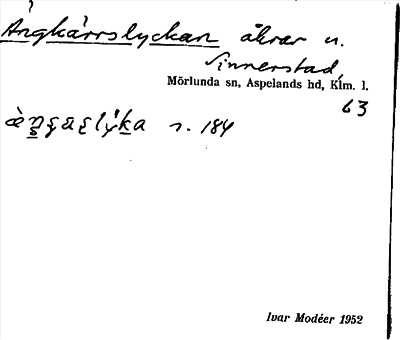 Ängkärrslyckan åkrar u.
Sinnerstad,
Mörlunda sn, Aspelands hd, Klm. l.
63
s. 184
Ivar Modéer 1952